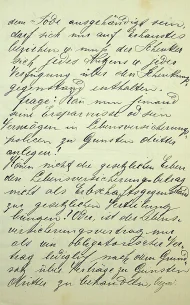 dem Tode ausgehändigt sein,
darf sich nur auf Erbaustes
beziehen u. muß der Schenker
sich jedes Nutzens u. jeder
Verfügung über den Schenkungs-
gegenstand enthalten.
Frage: Kann man jemand
seine Ersparnisse od. sein
Vermögen in Lebensversicherungs-
policen zu Gunsten dritter
anlegen?
Kann nicht die gesetzlichen Erben
den Lebensversicherungsbetrag
nicht als Erbschaftsgegenstand
zur gesetzlichen Verteilung
bringen? Oder ist der Lebens-
versicherungsvertrag nur
als ein obligatorischer Ver-
trag lediglich nach dem Grund-
satz über Verträge zu Gunsten
dritter zu behandeln,